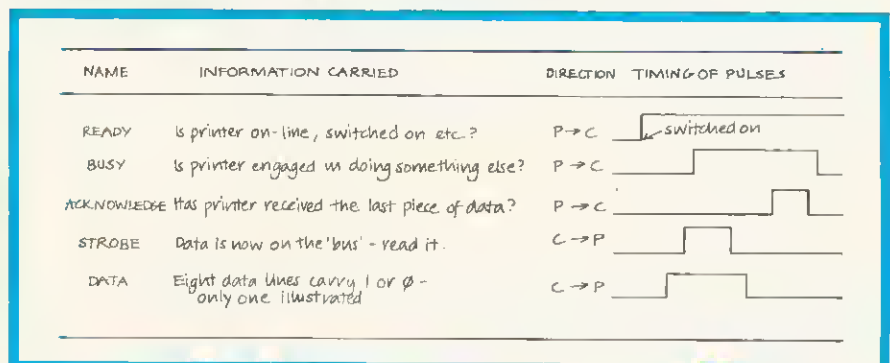 NAME INFORMATION CARRIED DIRECTION TIMING OF PULSES
READY Is printer on-line, switched on etc.? P→C switched on
BUSY Is printer engaged in doing something else? P→C
ACKNOWLEDGE Has printer received the last piece of data? P→C
STROBE Data is now on the 'bus' - read it. C→P
DATA Eight data lines carry 1 or Ø - C→P
only one illustrated